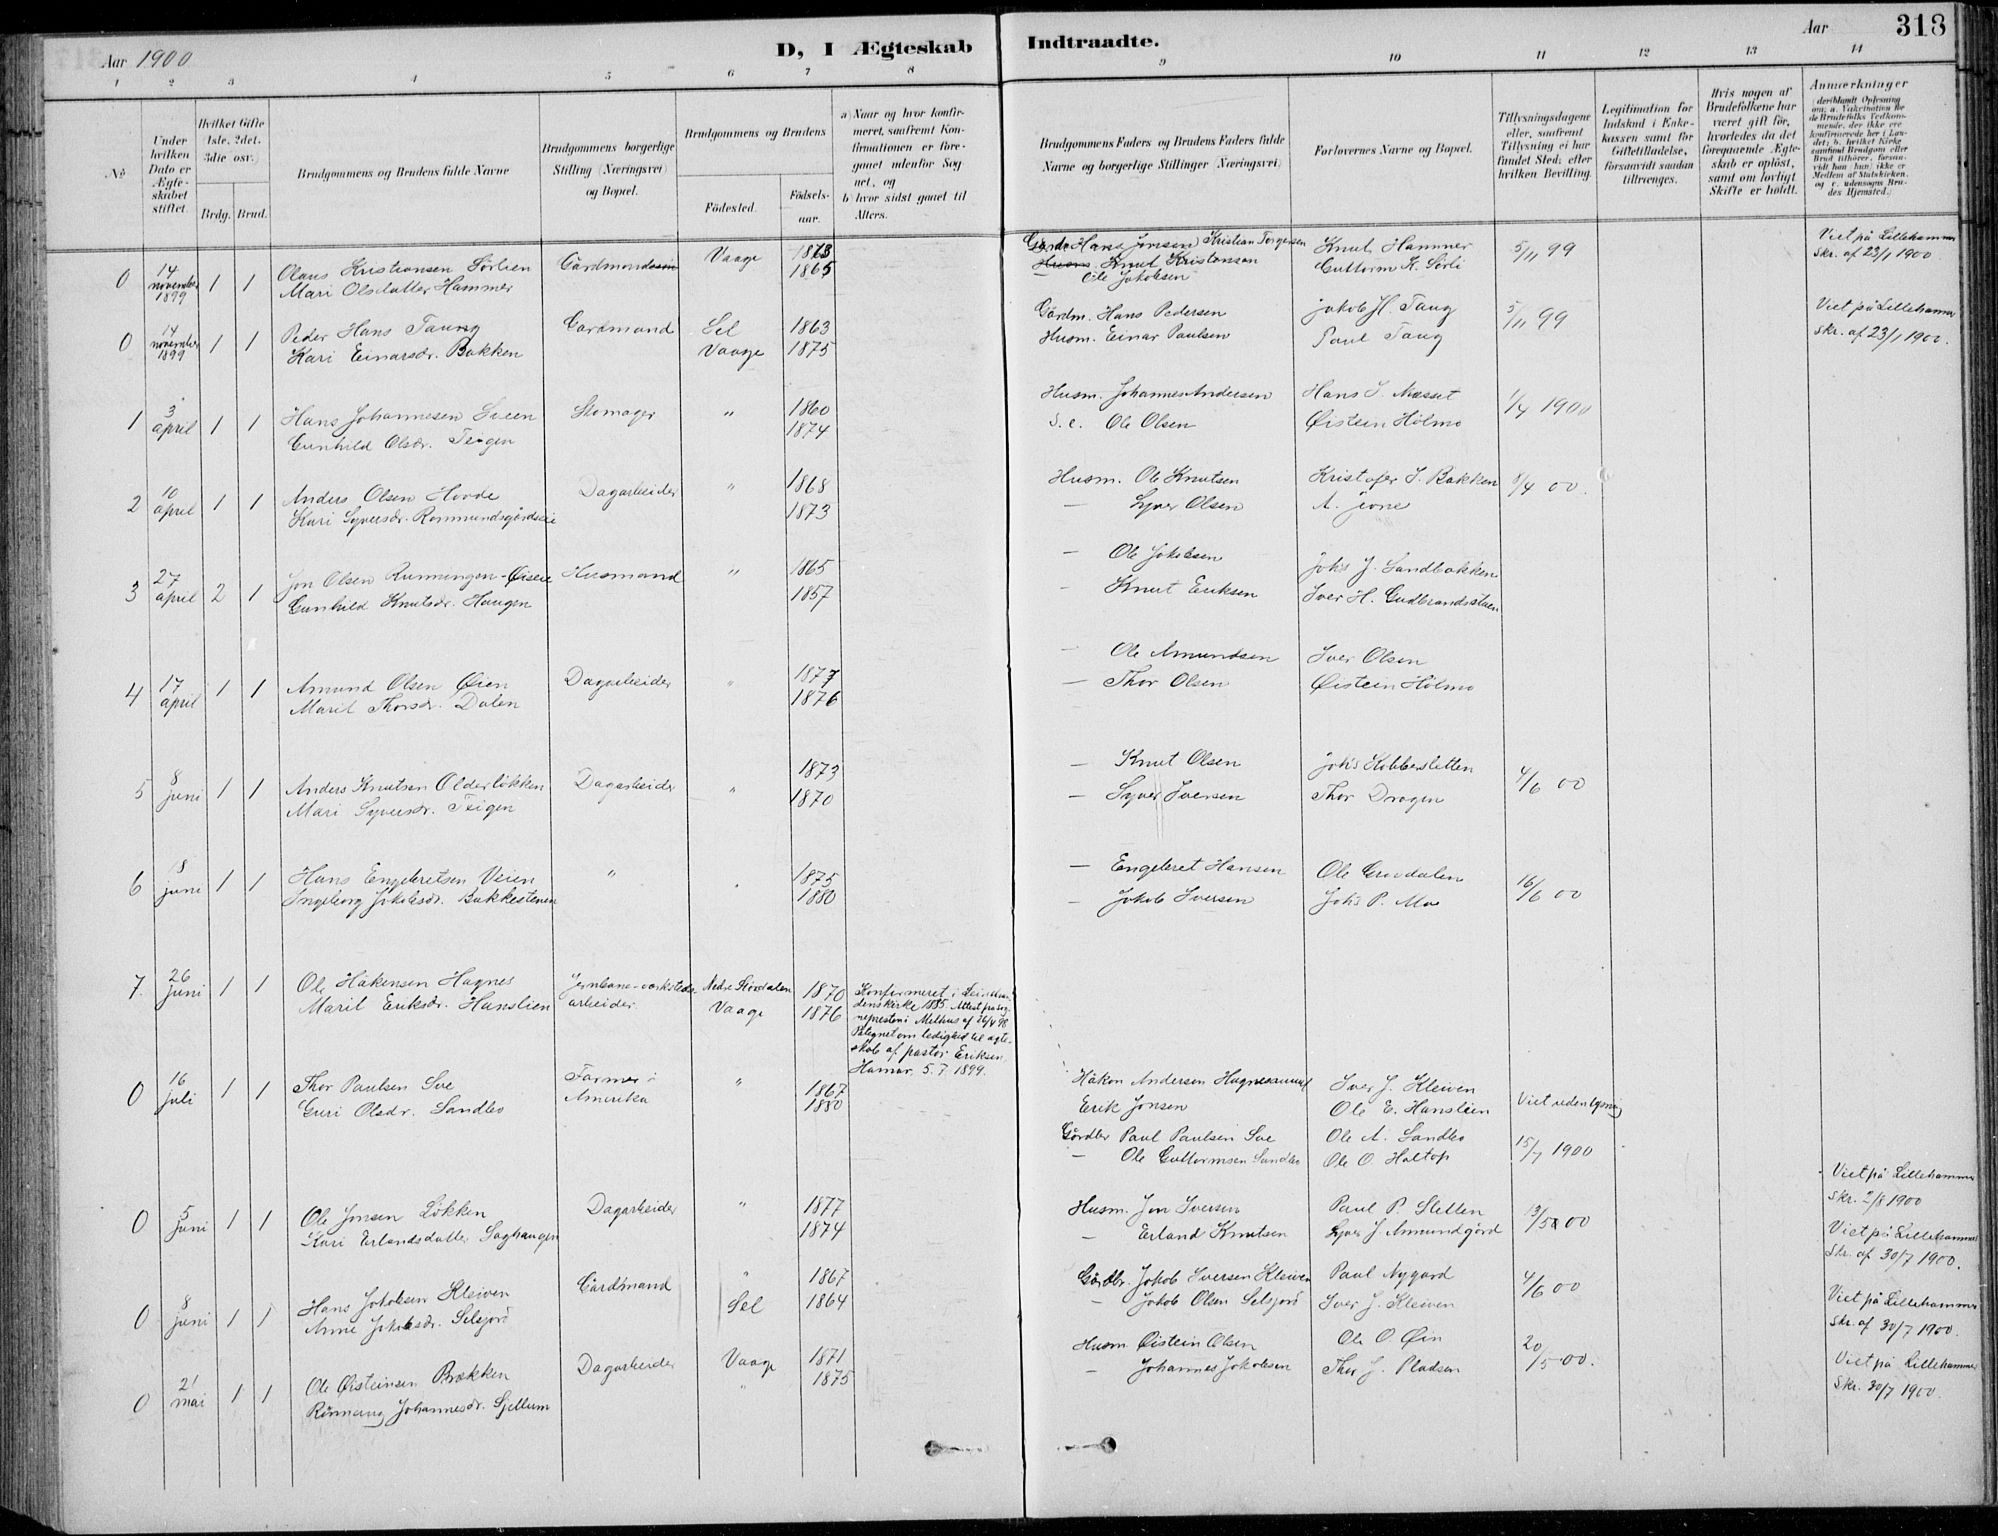 Aar 1900
D, I Ægteskab
Indtraadte.
Aar
318
1 2 3 4 5 6 7 8 9 10 11 12 13 14
No
Under hvilken Dato er Ægteskabet stiftet.
Hvilket Gifte 1ste, 2det, 3die osv.)
Brdg. Brud.
Brudgommens og Brudens fulde Navne
Brudgommens borgerlige Stilling (Næringsvei) og Bopæl.
Brudgommens og Brudens
Födested.
Födselsaar.
a) Naar og hvor konfirmeret, saafremt Konfirmationen er foregaaet udenfor Sognet, og
b) hvor sidst gaaet til Alters.
Brudgommens Faders og Brudens Faders fulde Navne og borgerlige Stillinger (Næringsvei)
Forlovernes Navne og Bopæl.
Tillysningsdagene eller, saafremt Tillysning ei har fundet Sted, efter hvilken Bevilling.
Legitimation for Indskud i Enkekassen samt for Giftetilladelse, forsaavidt saadan tiltrænges.
Hvis nogen af Brudefolkene har været gift för, hvorledes da det foregaaende Ægteskab er oplöst, samt om lovligt Skifte er holdt.
Anmærkninger
(deriblandt Oplysning om: a. Vakcination for de Brudefolks Vedkommende, der ikke ere konfirmerede her i Landet; b. hvilket Kirkesamfund Brudgom eller Brud tilhörer, forsaavidt han (hun) ikke er Medlem af Statskirken, og c. udensogns Brudes Hjemsted.)
0 14 november 1899 1 1 Olaus Kristiansen Sörlien Gårdmandssön Vaage 1873 Gårdm. Hans Jonsen Kristian Torgersen Knut Hammer 5/11 99 Viet på Lillehammer
Mari Olsdatter Hammer 1865 Husm. Knut Kristensen Guttorm K. Sörli skr. af 23/1 1900.
Ole Jakobsen
0 14 november 1899 1 1 Peder Hans Taung Gardmand Sel 1863 Gårdm. Hans Pedersen Jakob H. Taug 5/11 99 Viet på Lillehammer
Kari Einarsdr. Bakken Vaage 1875 Husm. Einar Paulsen Paul Taug skr. af 23/1 1900.
1 3 april 1 1 Hans Johannesen Sveen Skomager " 1860 Husm. Johannes Andersen Hans J. Næsset 1/4 1900
Gunhild Olsdr. Teigen 1874 S. e. Ole Olsen Øistein Hölmo
2 10 april 1 1 Anders Olsen Hovde Dagarbeider " 1868 Husm. Ole Knutsen Kristofer J. Bakken 8/4 00.
Kari Syversdr. Rommundsgårdseie 1873 — Syver Olsen A. Jone
3 27 april 2 1 Jon Olsen Runningen-Øiseie Husmand " 1865 — Ole Jakobsen Johs J. Sandbakken
Gunhild Knutsdr. Haugen 1857 — Knut Eriksen Iver H. Gudbrandsstuen
4 17 april 1 1 Amund Olsen Øien Dagarbeider " 1877 — Ole Amundsen Iver Olsen
Marit Thorsdr. Dalen 1876 — Thor Olsen Øistein Hölmo
5 8 juni 1 1 Anders Knutsen Olderlökken Dagarbeider " 1873 — Knut Olsen Johs Kobbersletten 4/6 00
Mari Syversdr. Teigen 1870 — Syver Iversen Thor Dragen
6 18 juni 1 1 Hans Engebretsen Veien " " 1875 — Engebret Hansen Ole Grovdalen 16/6 00
Ingeborg Jakobsdr. Bakkestenen 1880 — Jakob Iversen Johs P. Moe
7. 26 juni 1 1 Ole Håkensen Hagnes Jernbane-værksteds- Nedre Stördalen 1870 Konfirmeret i
Marit Eriksdr. Hanslien arbeider. Vaage 1876 denskirke 1885. Attest fra sog-
nepresten i Melhus af 26/4 98.
Påtegnet om ledighed til ægte-
skab af pastor Eriksen,
Hamar, 5. 7. 1899.
Håkon Andersen Iver J. Kleiven
Erik Jonsen Ole E. Hanslien Viet uden lysning
0 16 juli 1 1 Thor Paulsen Sve Farmer i " 1867 Gårdbr Paul Paulsen Sve Ole A. Sandbo 15/7 1900
Guri Olsdr. Sandbo Amerika 1880 — Ole Guttormsen Sandbo Ole O. Holtop
0 5 juni 1 1 Ole Jonsen Lökken Dagarbeider " 1877 Husm. Jon Iversen Paul P. Sletten 13/5 00 Viet på Lillehammer
Kari Erlandsdatter Saghaugen 1874 — Erland Knutsen Syver J. Ammundgård skr. 2/8 1900
0 8 juni 1 1 Hans Jakobsen Kleiven Gårdmand " 1867 Gårdbr. Jakob Iversen Kleiven Paul Nygard 4/6 00 Viet på Lillehammer
Anne Jakobsdr. Selsjord Sel 1864 — Jakob Olsen Selsjord Iver J. Kleiven Skr. af 30/7 1900.
Viet på Lillehammer
skr. af 30/7 1900.
0 21 mai 1 1 Ole Øisteinsen Brækken Dagarbeider Vaage 1871 Husm Øistein Olsen Ole O. Øin 20/5 00. Viet på Lillehammer
Rönnaug Johannesdr. Sjellum " 1875 — Johannes Jakobsen Thor J. Pladsen Skr. 30/7 1900.